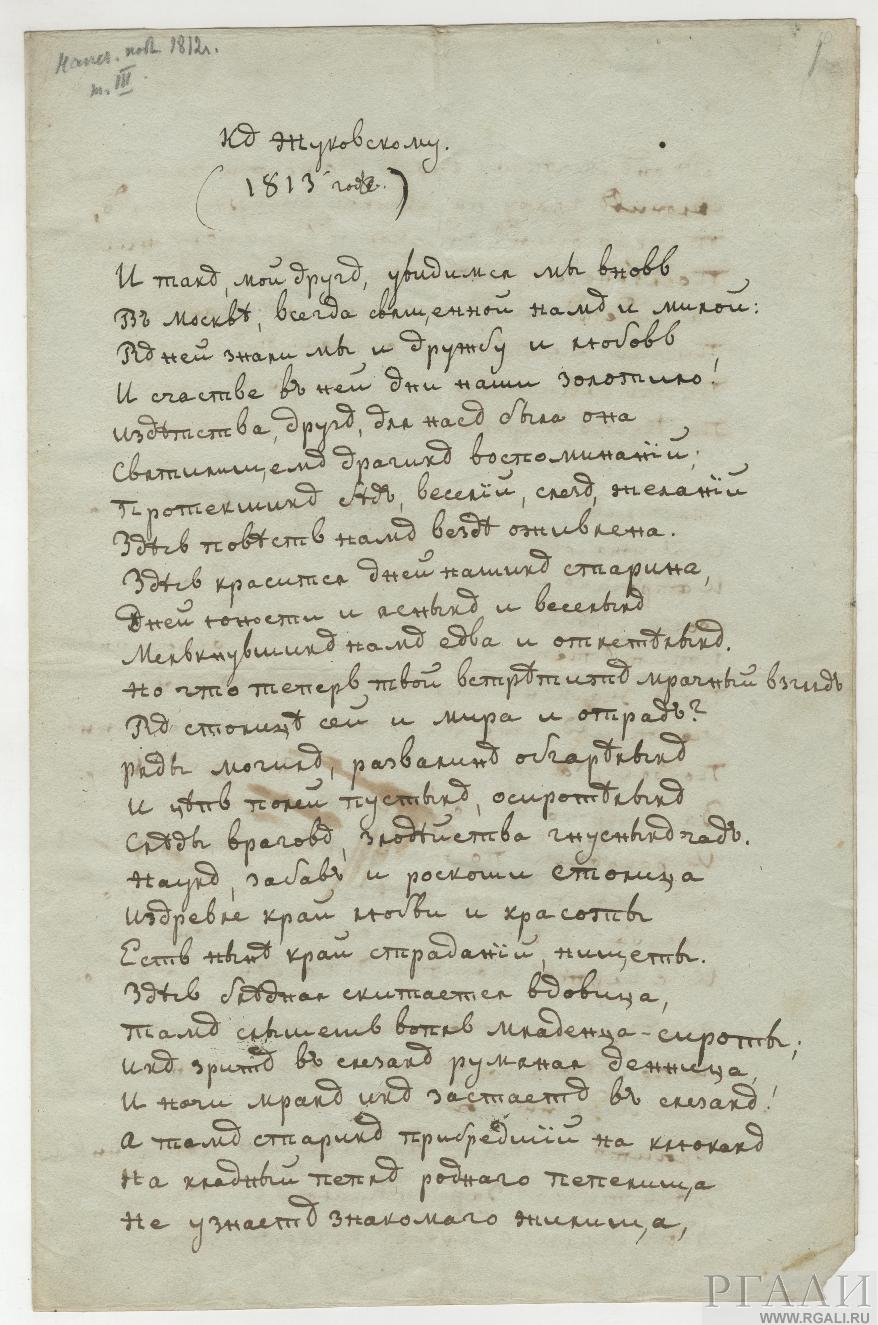 Напеч. 1812 г.
т. III.
Къ Жуковскому.
(1813 года.)
И такъ, мой другъ, увидимся мы вновь
Въ Москвѣ, всегда священной намъ и милой:
Въ ней знали мы и дружбу и любовь
И счастье въ ней дни наши золотило!
Издѣтства, другъ, для насъ была она
Святилищемъ драгихъ воспоминаній;
Протекшихъ бѣдъ, веселій, слезъ, желаній
Здѣсь повѣсть намъ вездѣ оживлена.
Здѣсь красится дней нашихъ старина,
Дней юности и ясныхъ и веселыхъ
Мелькнувшихъ намъ едва и отлетѣлыхъ.
Но что теперь твой встрѣтитъ мрачный взглядъ
Въ столицѣ сей и мира и отрадъ?
Ряды могилъ, развалинъ обгорѣлыхъ
И цѣпь полей пустыхъ, осиротѣлыхъ
Слѣды враговъ, злодѣйства гнусныхъ чадъ.
Наукъ, забавъ и роскоши столица
Издревле край любви и красоты
Есть нынѣ край страданій, нищеты.
Здѣсь бѣдная скитается вдовица,
Тамъ слышешь вопль младенца-сироты;
Ихъ зритъ въ слезахъ румяная денница,
И ночи мракъ ихъ застаетъ въ слезахъ!
А тамъ старикъ прибредшій на клюкахъ
На хладный пепелъ роднаго пепелища
Не узнаетъ знакомаго жилища,
РГАЛИ
WWW.RGALI.RU